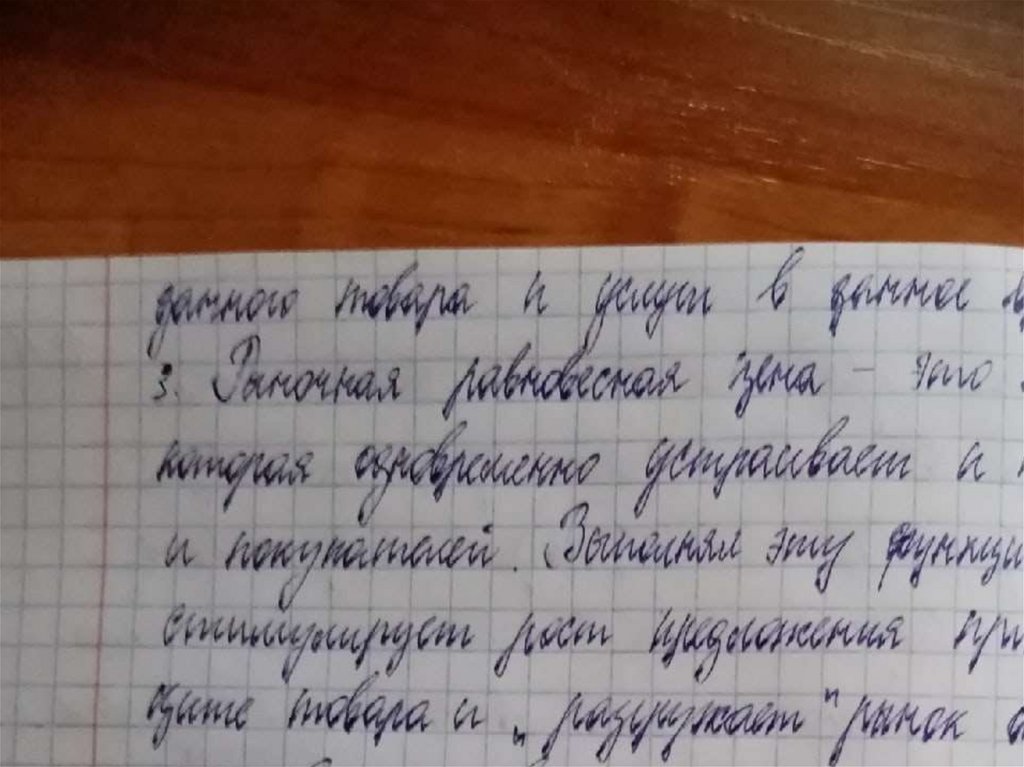 данного товара и услуги в данное
3. Рыночная равновесная цена - это
которая одновременно устраивает и
и покупателей. Выполняя эту функци
стимулирует рост предложения при
ците товара и "разгружает" рынок о